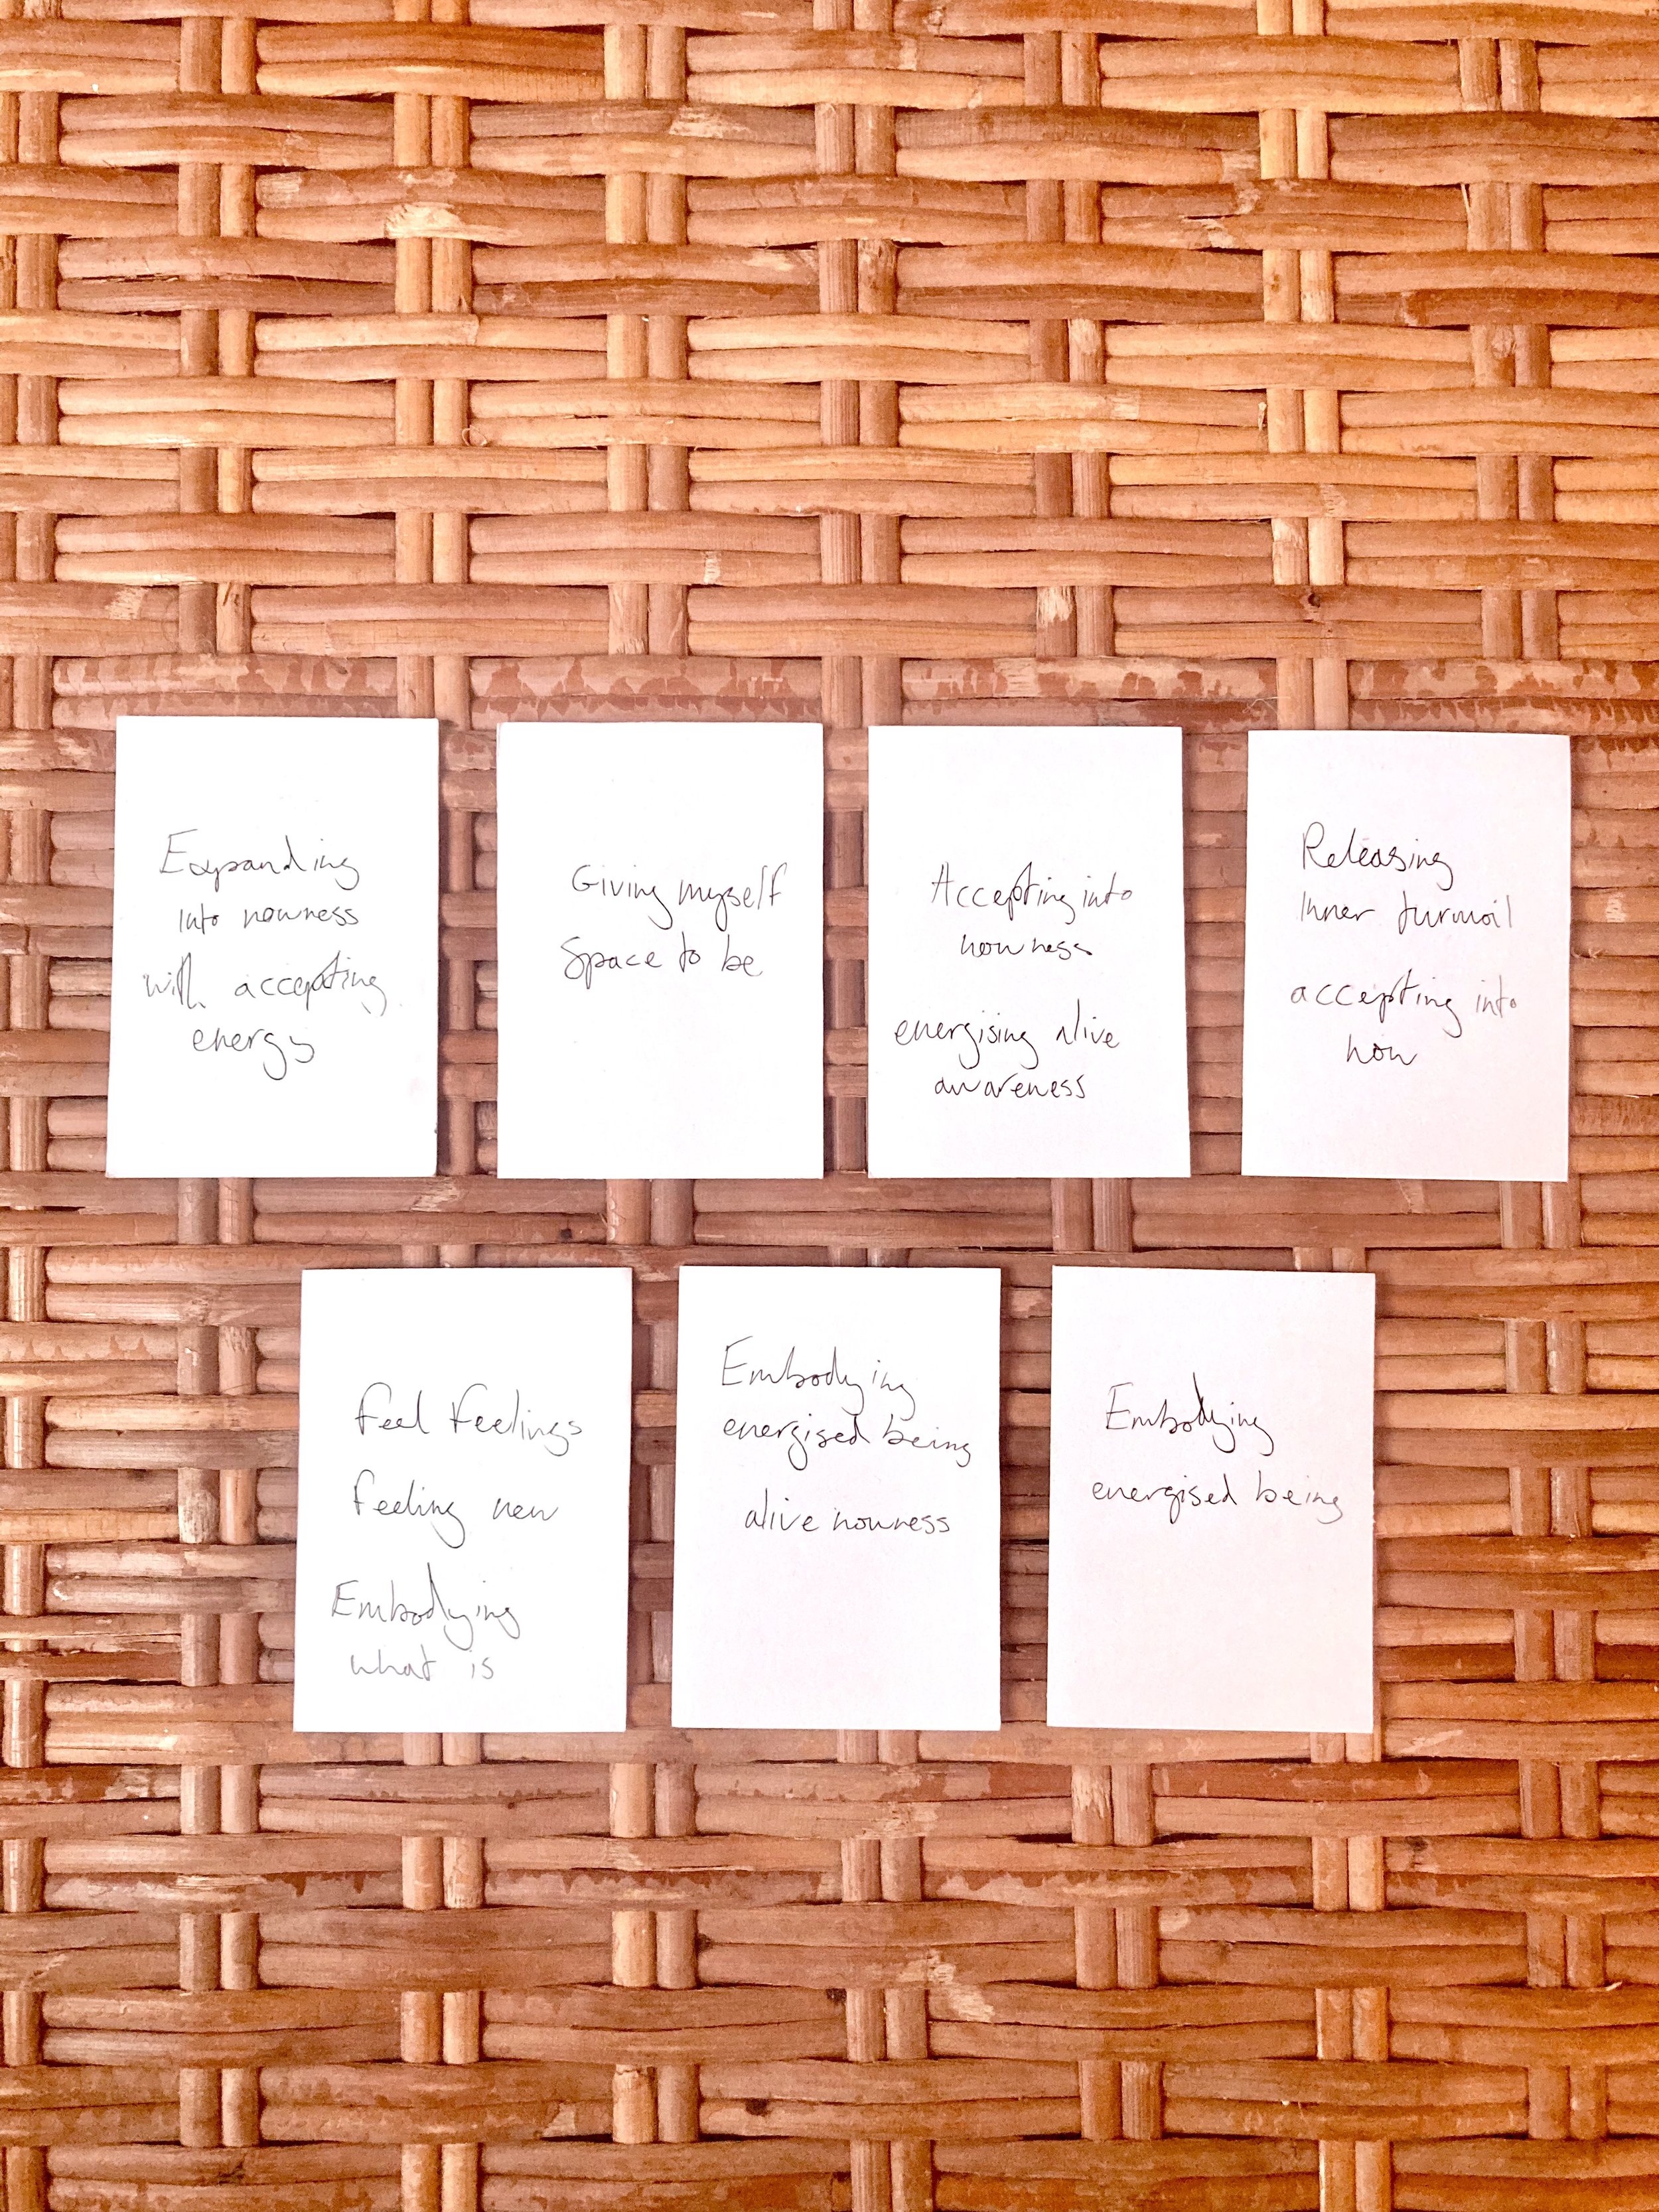 Expanding
into nowness
with accepting
energy
Giving myself
Space to be
Accepting into
nowness
energising alive
awareness
Releasing
Inner turmoil
accepting into
now
Feel Feelings
Feeling new
Embodying
what is
Embodying
energised being
alive nowness
Embodying
energised being